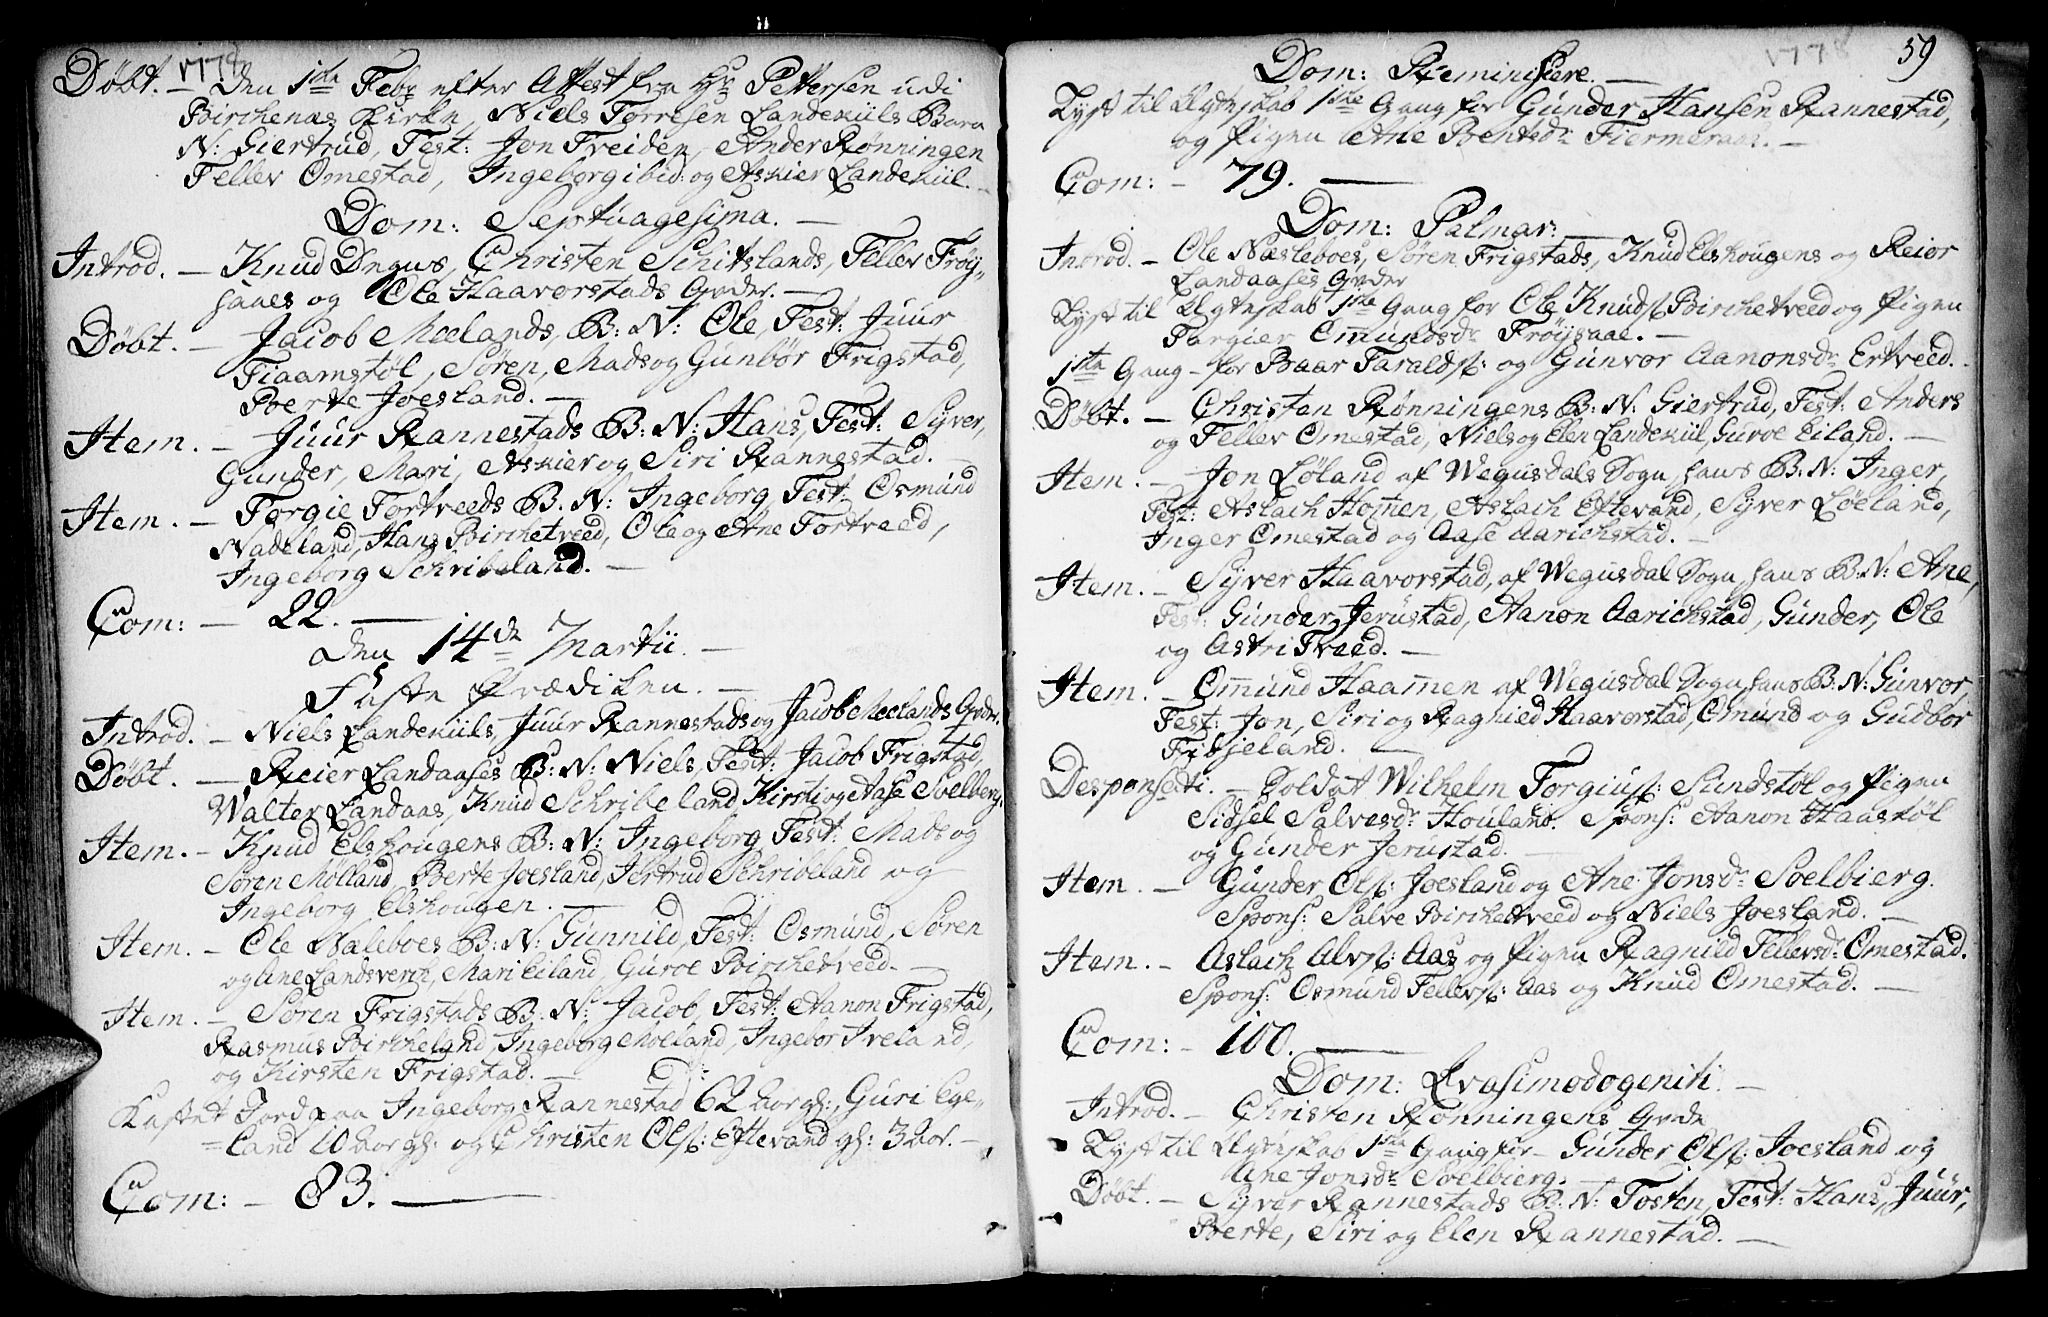 1778
Døbt. — Den 1ste Febr efter Attest fra Hr Pettersen udi
Birchenæs Kirke, Niels Torresen Landekiils Barn
N: Giertrud, Test: Jon Treiden, Ander Rønningen
Tellev Omestad, Ingeborg ibid: og Askier Landekiil. —
Dom: Septuagesima. —
Introd. — Knud Dngus, Christen Schitslands, Tellev Frøy-
saaes og Ole Haavorstads Qvder. —
Døbt. — Jacob Meelands, B: N: Ole, Test: Juur
Tiaamstøl, Søren, Mads og Gunbør Frigstad,
Berte Joesland. —
Item. — Juur Rannestads B: N: Hans, Test: Syver,
Gunder, Mari, Askier og Siri Rannestad. —
Item. — Torgie Tortveeds B. N: Ingeborg, Test: Osmund
Nadeland, Hans Birchetveed, Ole og Ane Tortveed,
Ingeborg Schribeland. —
Com: — 22. —
den 14de Martii —
Faste Prædiken. —
Introd. — Niels Landekiils, Juur Rannestads og Jacob Meelands Qvdr.
Døbt. — Reier Landaases B: N: Niels, Test: Jacob Frigstad,
Walter Landaas, Knud Schribeland Kirsti og Aase Soelberg.
Item. — Knud Elshougens B: N: Ingeborg, Test: Mads og
Søren Mølland, Berte Joesland, Jertrud Schribeland og
Ingeborg Elshougen. —
Item. — Ole Naleboes B: N: Gunnild, Test: Osmund, Søren
og Ane Landsverck, Mari Eiland, Guroe Birchetveed. —
Item. — Søren Frigstads B: N: Jacob, Test: Aanon Frigstad,
Rasmus Bircheland, Ingeborg Moeland, Ingebor Iveland,
og Kirsten Frigstad. —
Kastet Jord paa Ingeborg Rannestad 62 aar gl:, Guri Ege-
=land 10 aar gl: og Christen Ols: Eftevand gl: 3 aar. —
Com: — 83. —
1778 59
Dom: Reminisere. —
Lyst til Ægteskab 1ste Gang for Gunder Hansen Rannestad,
og Pigen Ane Bentsdr Tiermeraas. —
Com: — 79. —
Dom: Palmar: —
Introd. — Ole Næsleboes, Søren Frigstads, Knud Elshougens og Reior
Landaases Qvder
Lyst til Ægteskab 1ste Gang for Ole Knuds: Birchetveed og Pigen
Targier Omundsdr Frøysaae. —
1ste Gang — for Baar Taralds: og Gunvor Aanonsdr Ertveed. —
Døbt. — Christen Rønningens B: N: Giertrud, Test: Anders
og Tellev Omestad, Niels og Elen Landekiil, Guroe Eiland. —
Item. — Jon Løland af Wegusdals Sogn, hans B: N: Inger,
Test: Aslach Homen, Aslach Eftevand, Syver Løeland,
Inger Omestad og Aase Aarichstad. —
Item. — Syver Haavorstad, af Wegusdal Sogn, hans B: N: Ane,
Test: Gunder Jerustad, Aanon Aarichstad, Gunder, Ole
og Astri Tveed. —
Item. — Omund Haamen af Wegusdal Sogn, hans B: N: Gunvor,
Test: Jon, Siri og Ragnied Haavorstad, Omund og Gudbor
Fribsjeland. —
Desponsati. — Soldat Wilhelm Torgius: Sundstøl og Pigen
Sidsel Salvesdr Houland. Spons: Aanon Haastøl
og Gunder Jerustad. —
Item. — Gunder Ols: Joesland og Ane Jonsdr Soelbierg.
Spons: Salve Birchetveed og Niels Joesland. —
Item. — Aslach Alvs: Aas og Pigen Ragnild Tellevsdr Omestad.
Spons: Osmund Tellevs: Aas og Knud Omestad. —
Com: — 100. —
Dom: Qvasimodogeniti. —
Introd. — Christen Rønningens Qvde
Lyst til Ægteskab 1ste Gang for — Gunder Ols: Joesland og
Ane Jonsdr Soelbierg. —
Døbt. — Syver Rannestads B: N: Tosten, Test: Hans, Juur,
Berte, Siri og Elen Rannestad. —